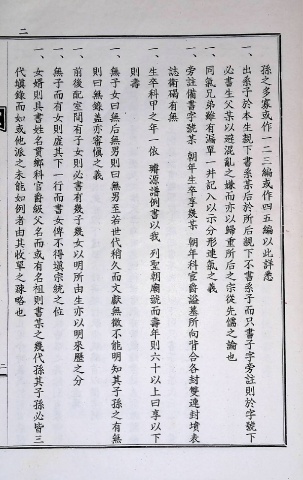 孫之多寡或作一二三編或作四五編以此詳悉
一、出系子于本生親下書系某后於所后親下不書系子而只書子字旁註則於字號下
必書生父某以避混亂之嫌而亦以歸重所后之宗從先儒之論也
一、同氣兄弟雖有漏單一幷記入以示分形連氣之義
一、旁註備書字號某 朝年生卒享幾某 朝年科官爵謚墓所向背合各封雙連封墳表
誌銜碣有無
一、生卒科甲之年一依 璿源譜例書以我 列聖朝廟號而壽年則六十以上曰享以下
則壽
一、無子女曰無后無男則曰無男至若世代稍久而文獻無徵不能明知其子孫之有無
則曰無錄盖亦審愼之義
一、前後配室間有子女則必書有幾子幾女以明所由生亦以明來歷之分
一、無子而有女則虛其下一行而書女俾不得塡宗統之位
一、女婿則具書姓名貫鄕科官爵級父名而或有名祖則書某之幾代孫其子孫必皆三
代塡錄而如或他派之未能如例者由其收單之疎略也
二